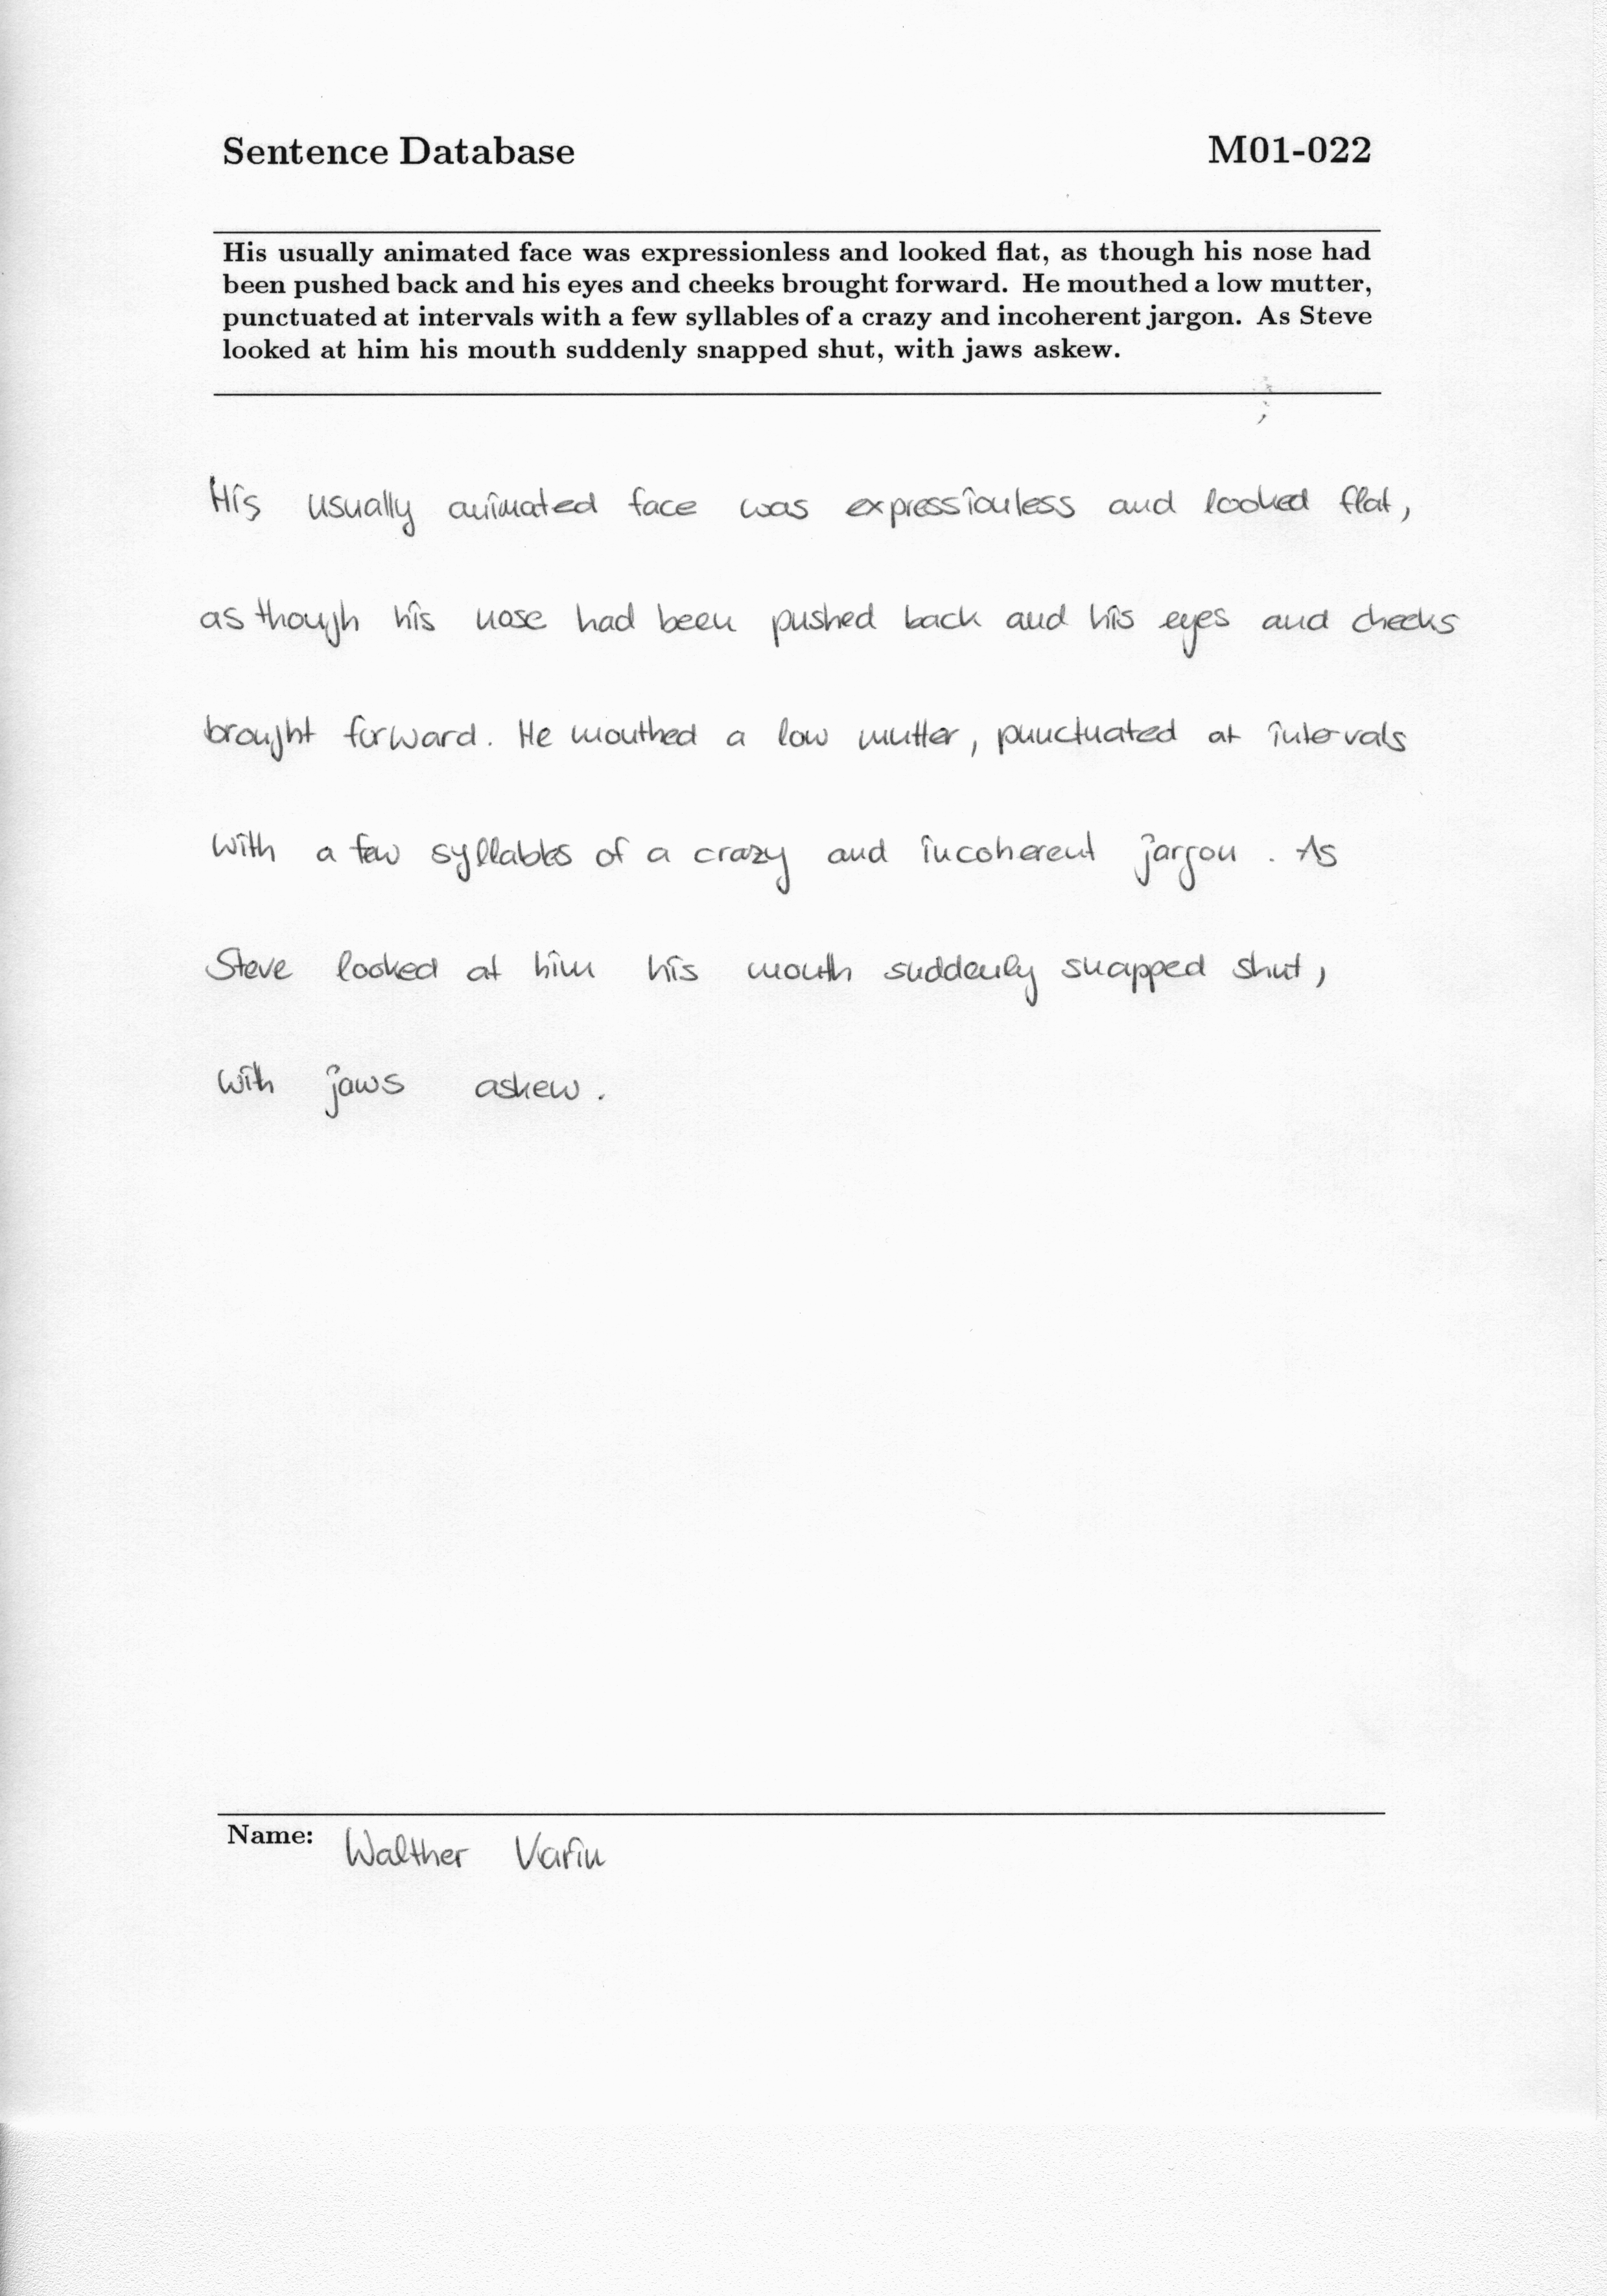 Sentence Database M01-022
His usually animated face was expressionless and looked flat, as though his nose had
been pushed back and his eyes and cheeks brought forward. He mouthed a low mutter,
punctuated at intervals with a few syllables of a crazy and incoherent jargon. As Steve
looked at him his mouth suddenly snapped shut, with jaws askew.
His usually animated face was expressionless and looked flat,
as though his nose had been pushed back and his eyes and cheeks
brought forward. He mouthed a low mutter, punctuated at intervals
with a few syllables of a crazy and incoherent jargon. As
Steve looked at him his mouth suddenly snapped shut,
with jaws askew.
Name: Walther Varin